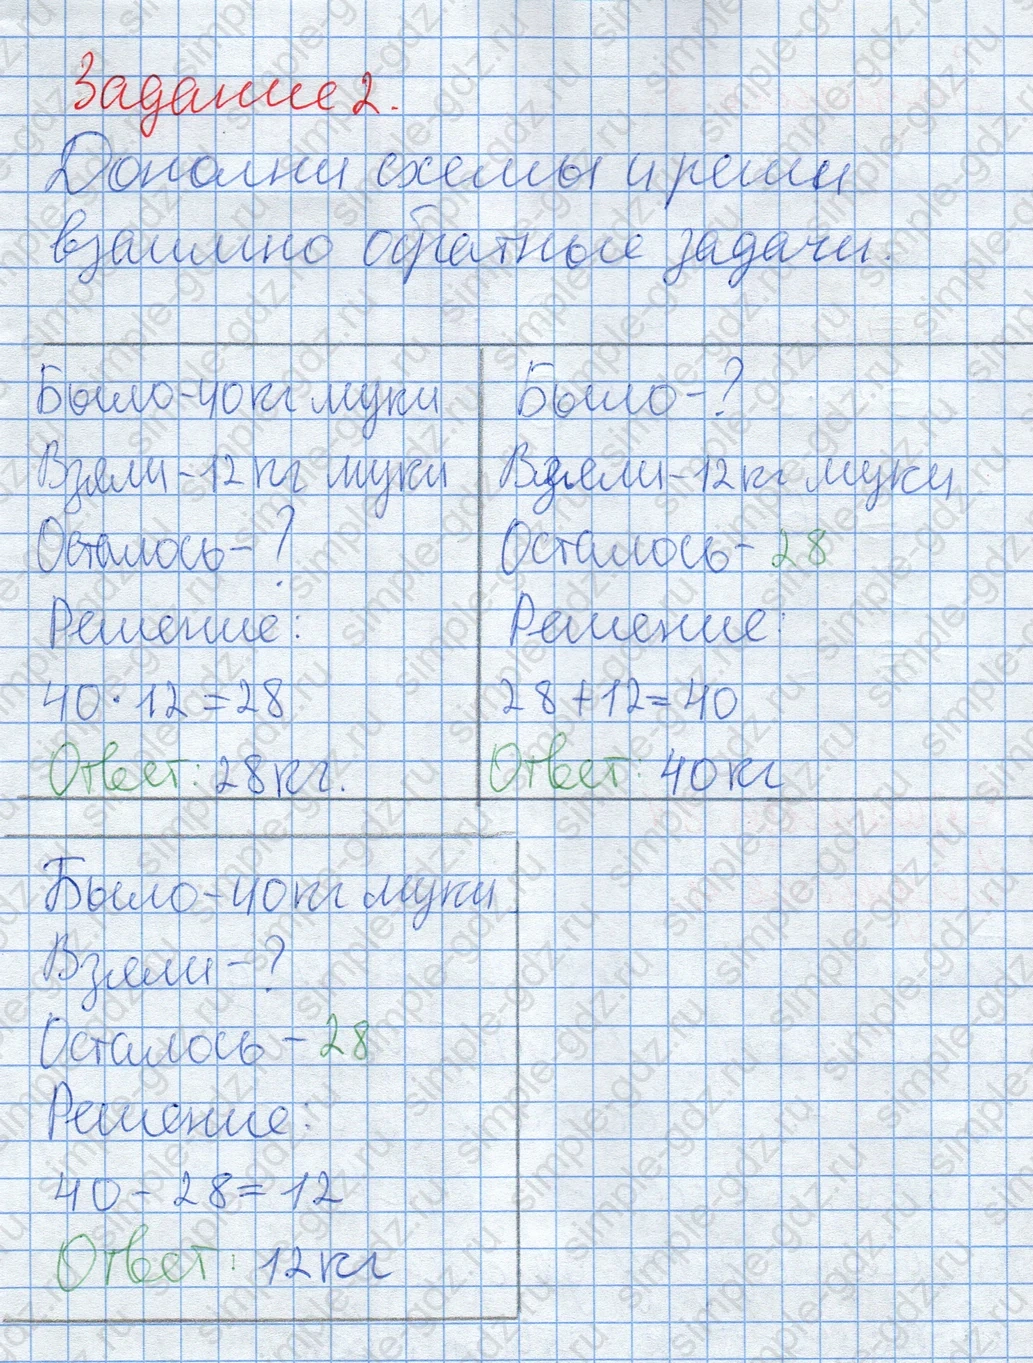 Задание 2.
Дополни схемы и реши
взаимно обратные задачи.
Было-40кг муки
Взяли-12кг муки
Осталось-?
Решение:
40·12=28
Ответ: 28кг.
Было-?
Взяли-12кг муки
Осталось-28
Решение:
28+12=40
Ответ: 40кг
Было-40кг муки
Взяли-?
Осталось-28
Решение:
40-28=12
Ответ: 12кг
simple-gdz.ru